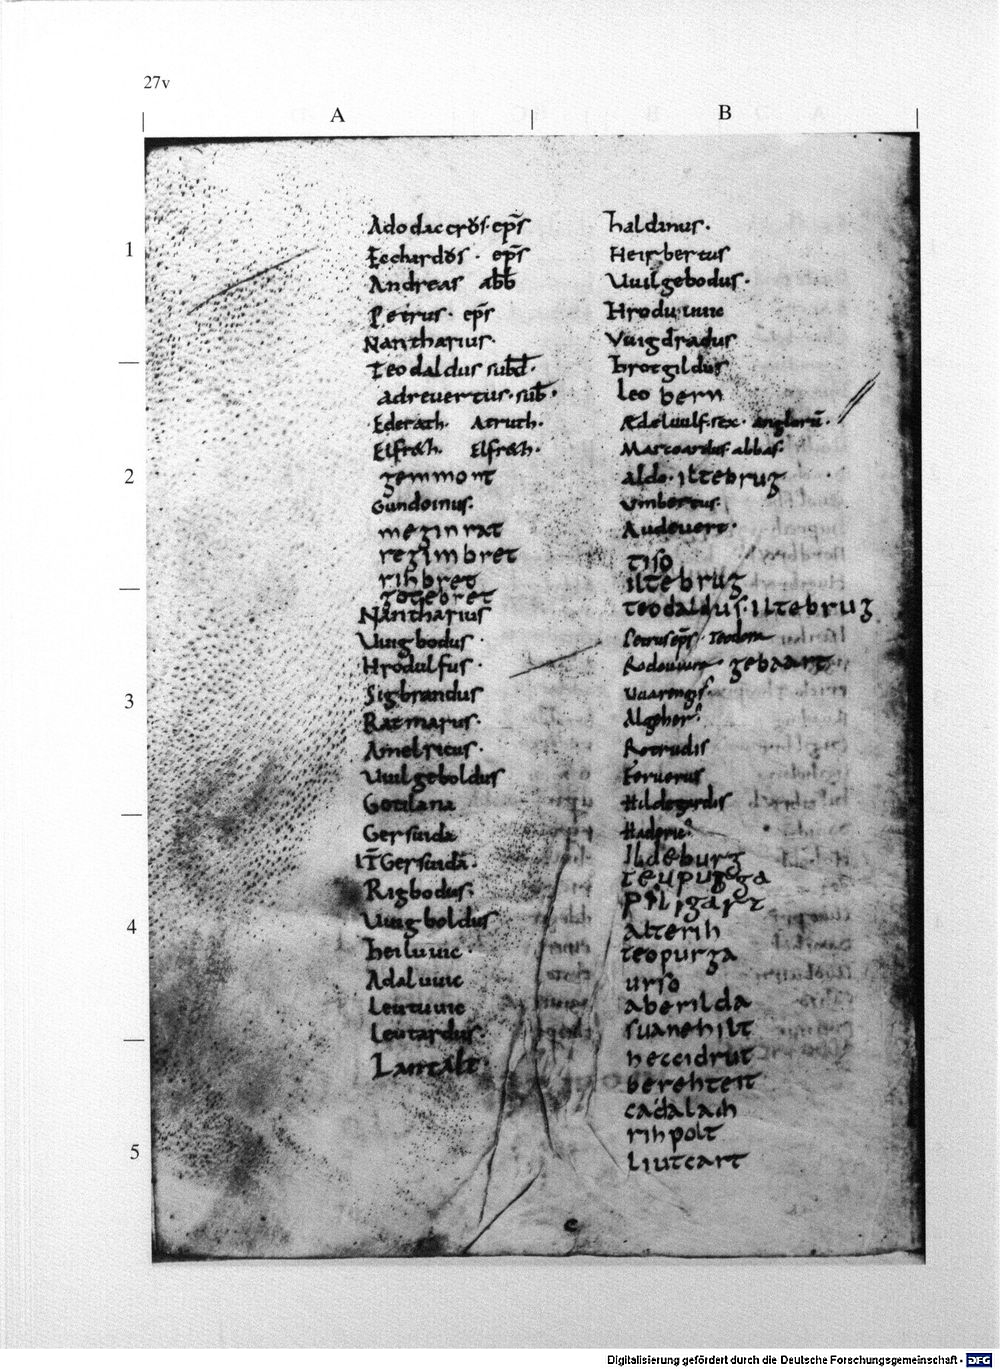 27v
A
B
1
2
3
4
5
Adodaccrus· ep̄s
Ecchardus· ep̄s
Andreas abb
Petrus· ep̄s
Nantharius·
Teodaldus subd·
adrevertus· sub·
Ederath· Atruth·
Elfrach· Elfrach·
gemmont
Gundoinus·
meginrat
regimbret
rihbret
gotebret
Nantharius
Uuigbodus·
Hrodulfus·
Sigbrandus
Ratmarus·
Amelricus·
Uuilgeboldus
Gotilana
Gersuida
IT̄ Gersuida·
Rigbodus·
Uuigboldus
heiluuic·
Adaluuic
Leutuuic
Leutardus·
Lantalt·
haldinus·
Heirbertus
Uuilgebodus·
Hroduuinc
Uuigdradus
hrotgildus
leo bern
Ædeluulf· rex· anglorū·
Marcoardus· abbas·
aldo· iltebrug
Umbertus·
Audevert·
tiso
iltebrug
teodaldus· iltebrug
Petrus ep̄s· Teodora
gebaart
Uuarengis·
Algeher·
Rotrudis
Feruerus
Hildegardis
Ildeburg
teupurga
piligart
alterih
teopurga
urso
aberilda
suanehilt
heccidrut
berehteit
cadalach
rihpolt
liutcart
c
Digitalisierung gefördert durch die Deutsche Forschungsgemeinschaft - DFG